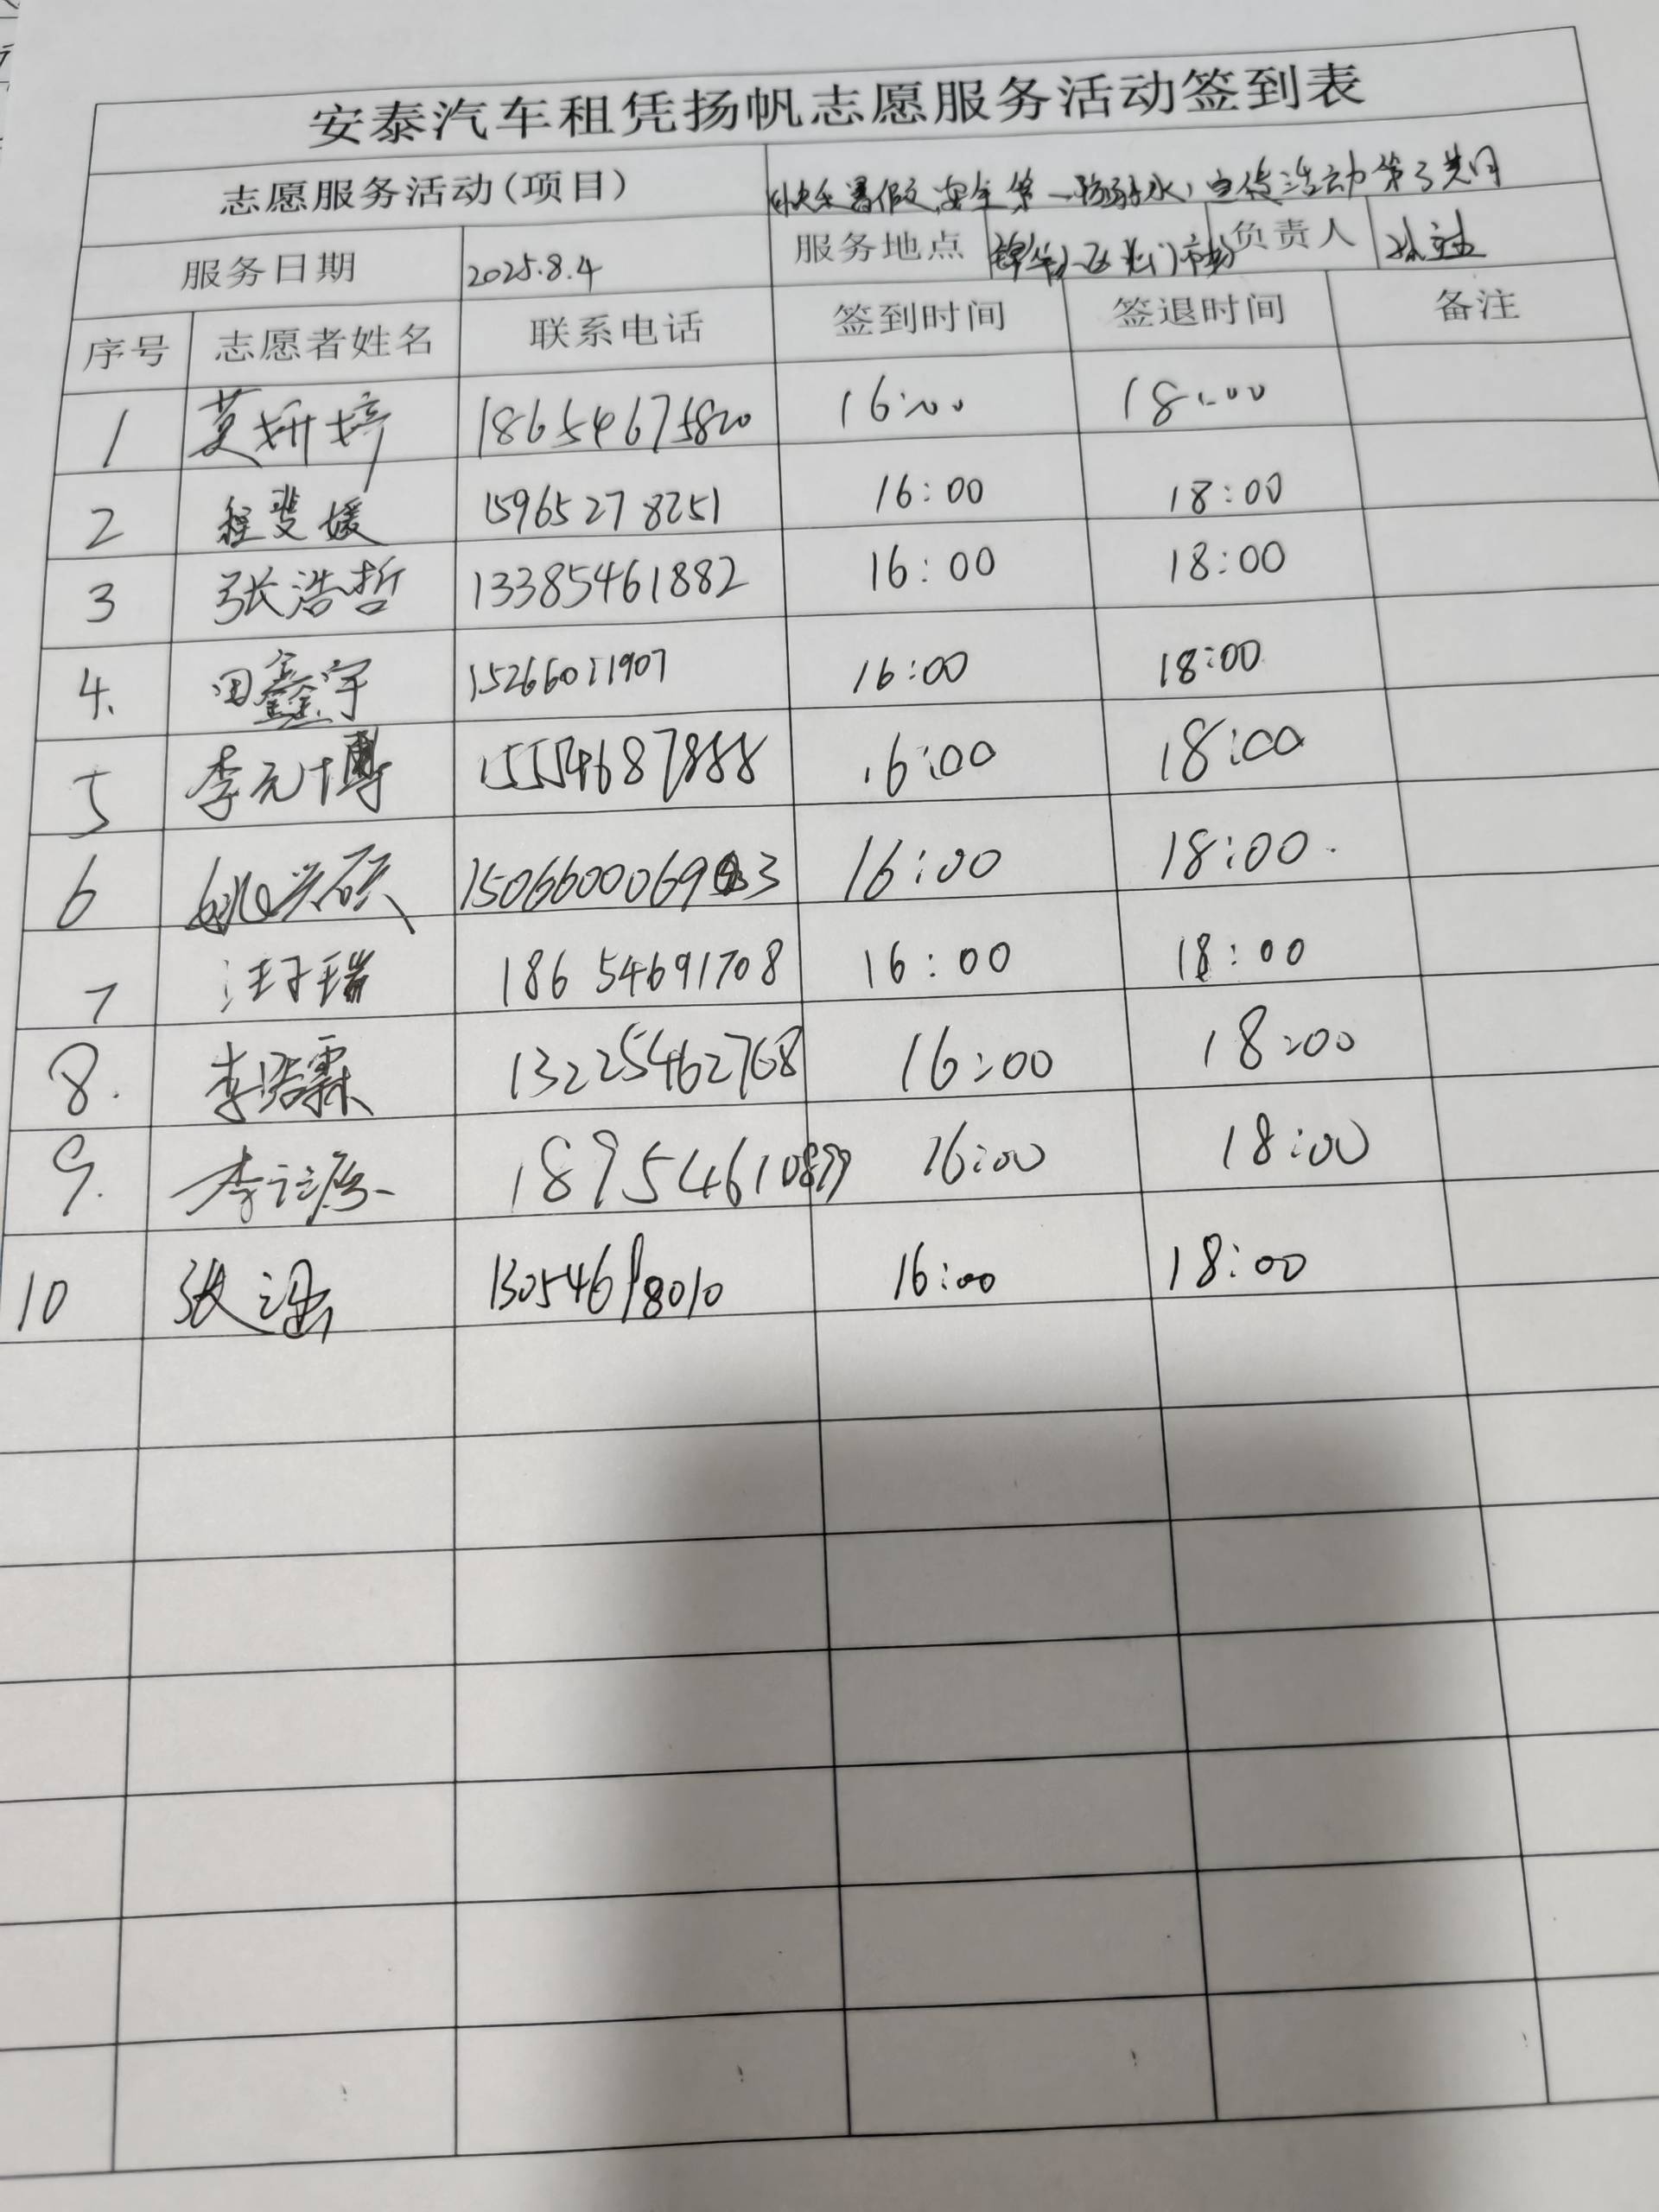 安泰汽车租凭扬帆志愿服务活动签到表
志愿服务活动(项目) 快乐暑假,安全第一防溺水,宣传活动第3类网
服务日期 2025.8.4 服务地点 门市 负责人
序号 志愿者姓名 联系电话 签到时间 签退时间 备注
1 妍婷 18654675820 16:00 18:00
2 程斐媛 15965278251 16:00 18:00
3 张浩哲 13385461882 16:00 18:00
4. 田鑫宇 15266011907 16:00 18:00
5 李元博 15554687888 16:00 18:00
6 16:00 18:00.
7 汪子瑞 18654691708 16:00 18:00
8. 李浩霖 13225462768 16:00 18:00
9. 18954610899 16:00 18:00
10 张涵 13054698010 16:00 18:00